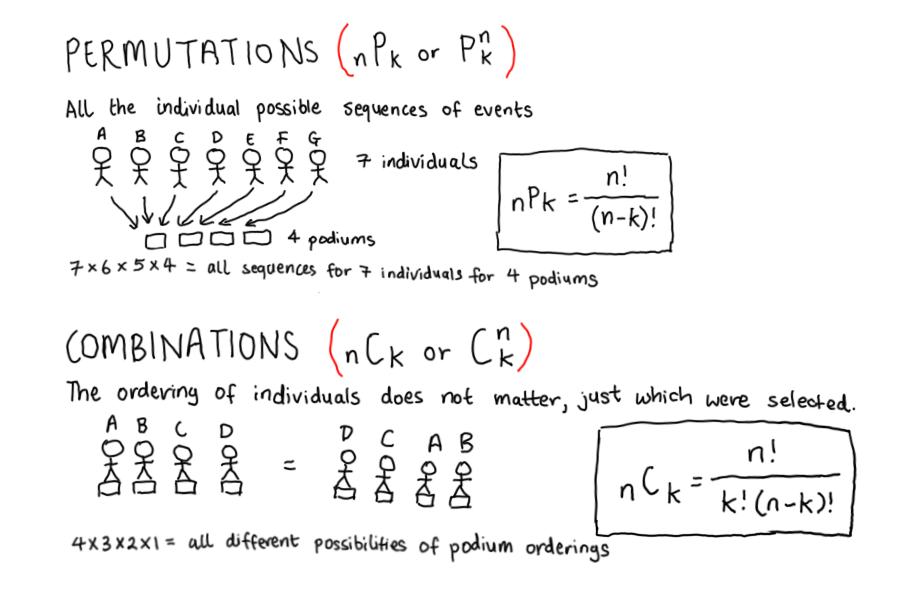 PERMUTATIONS (nPk or Pⁿₖ)
All the individual possible sequences of events
A B C D E F G
7 individuals
nPk = n! / (n-k)!
4 podiums
7 × 6 × 5 × 4 = all sequences for 7 individuals for 4 podiums
COMBINATIONS (nCk or Cⁿₖ)
The ordering of individuals does not matter, just which were selected.
A B C D = D C A B
nCk = n! / k!(n-k)!
4×3×2×1 = all different possibilities of podium orderings